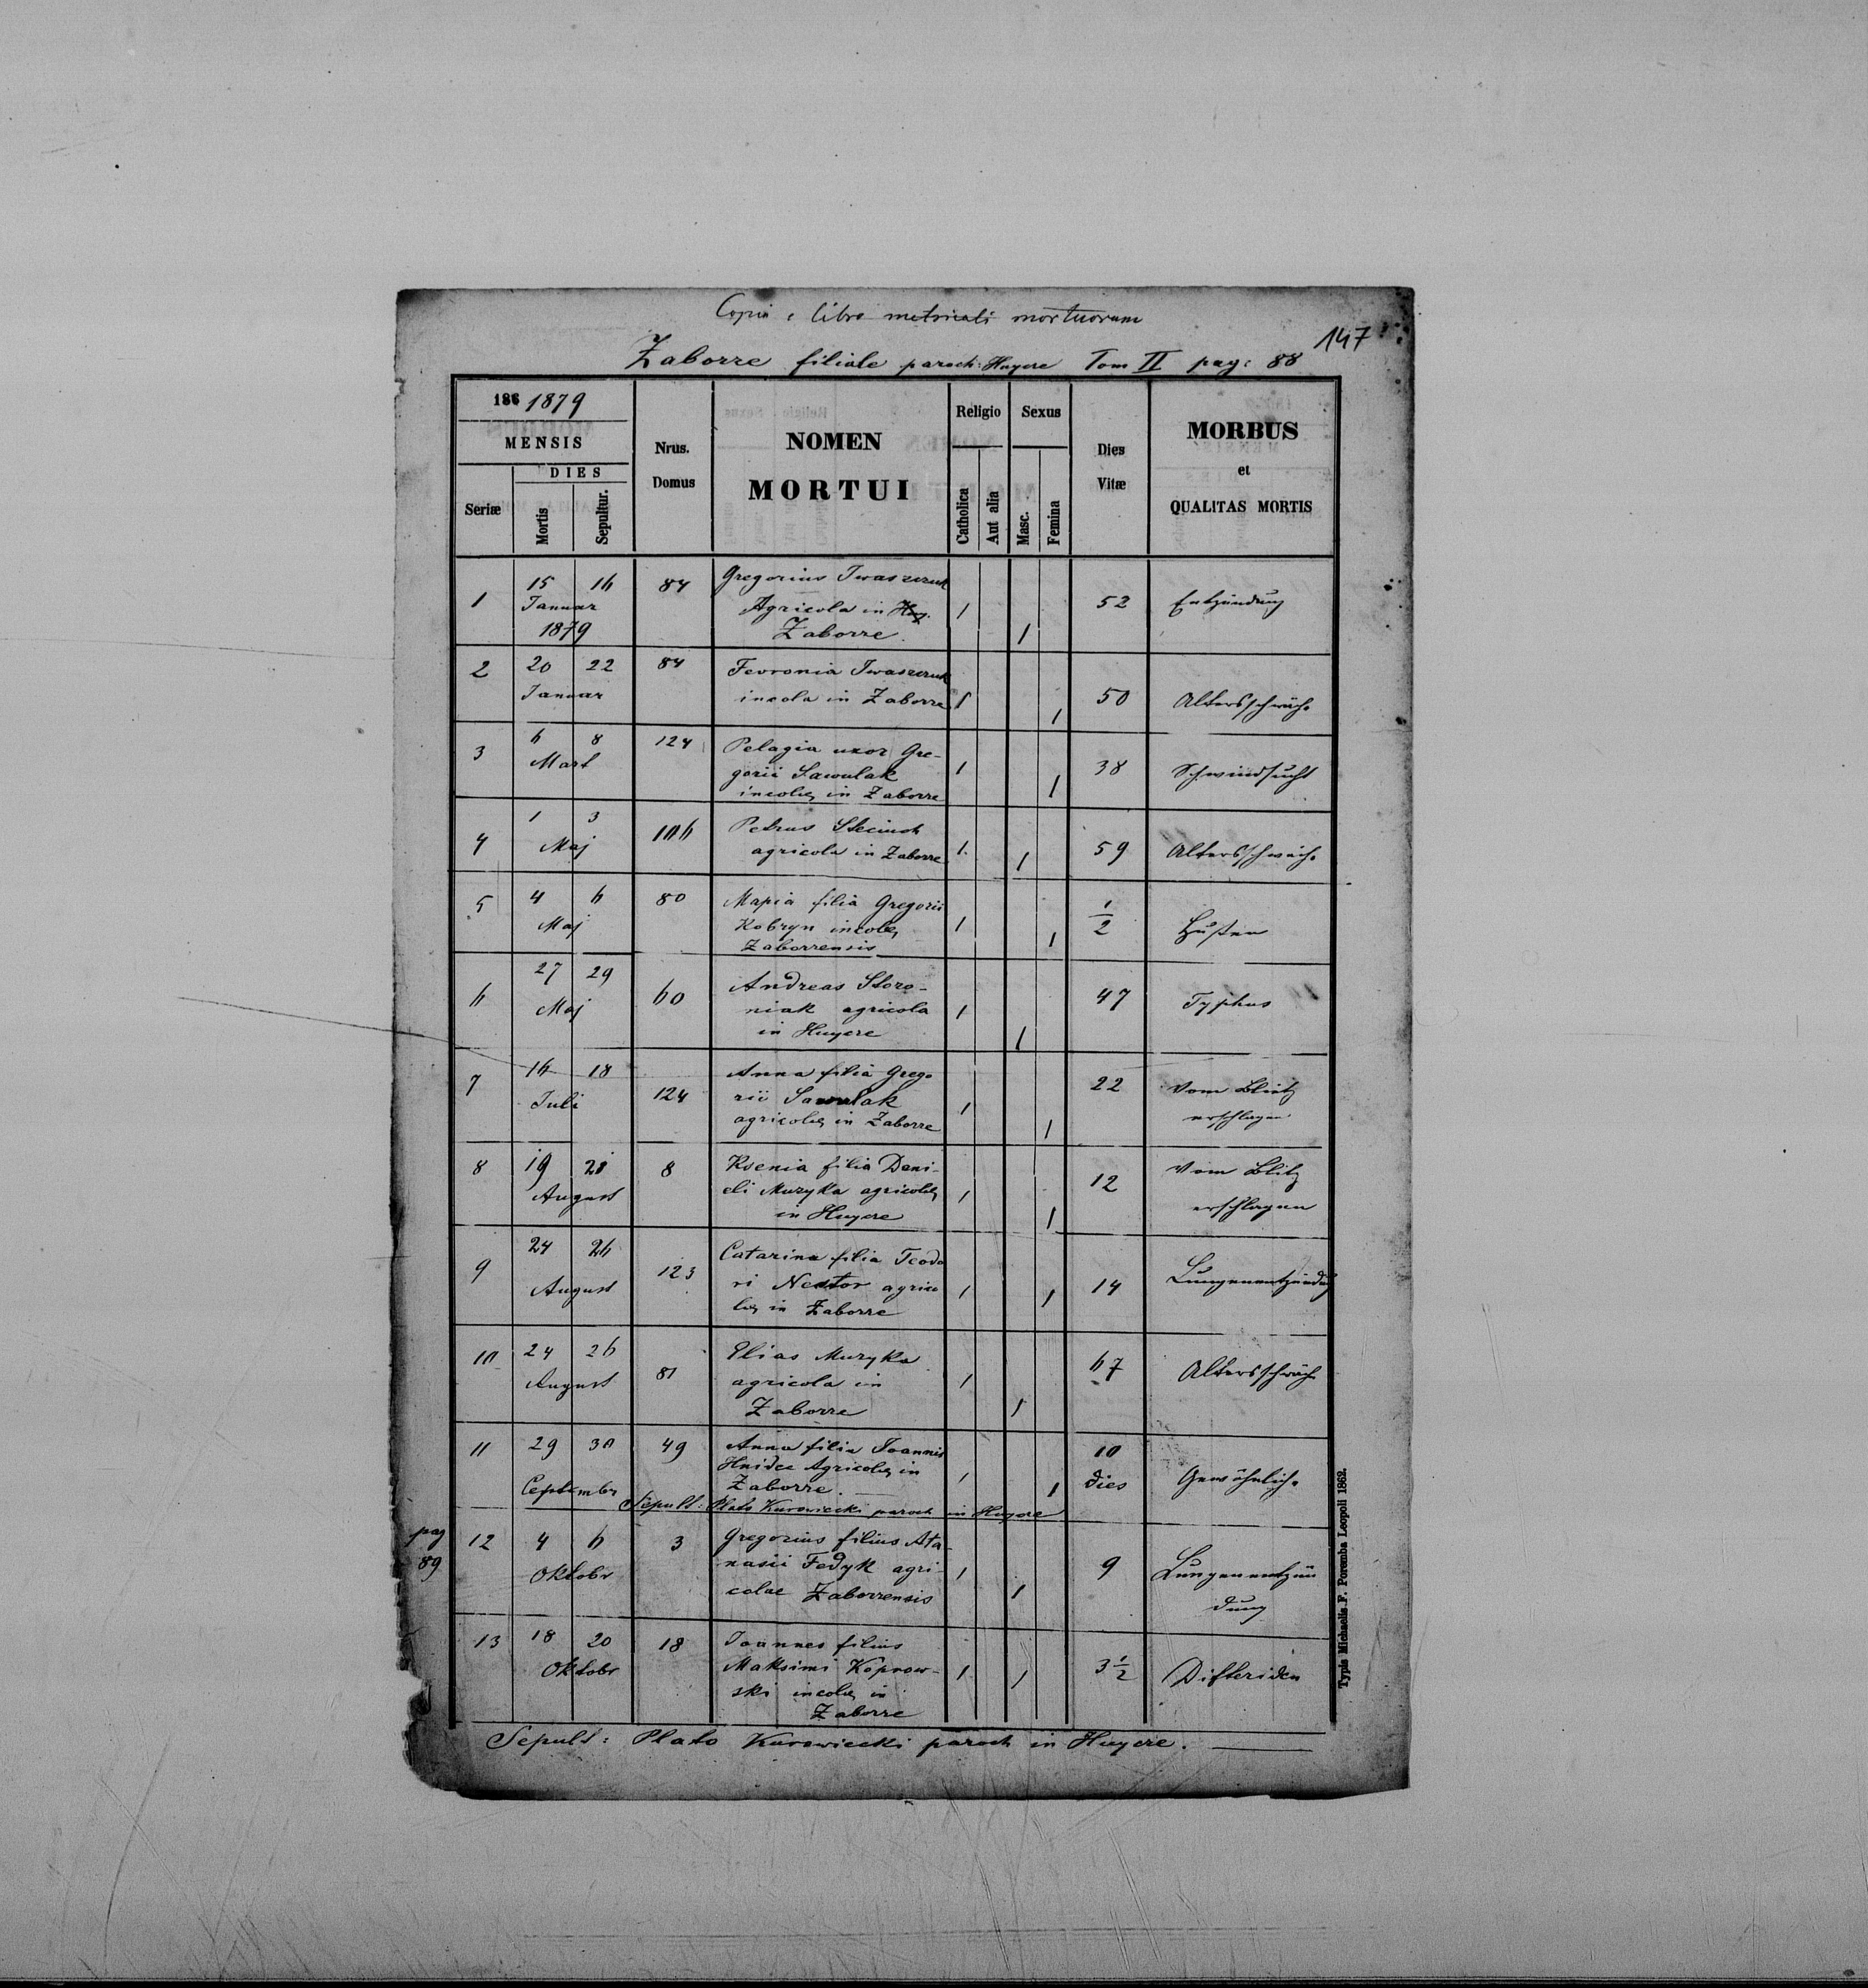 Copia e libro metricali mortuorum
147
Zaborze filiale paroch: Hujcze Tom II pag: 88
186 1879
MENSIS
DIES
Seriæ
Mortis
Sepultur.
Nrus.
Domus
NOMEN
MORTUI
Religio
Catholica
Aut alia
Sexus
Masc.
Femina
Dies
Vitæ
MORBUS
et
QUALITAS MORTIS
1 15 16 84 Gregorius Iwaszczuk
Januar Agricola in 1 52 Entzündung
1879 Zaborze 1
2 20 22 84 Fevronia Iwaszczuk
Januar incola in Zaborze 1 1 50 Altersschwäche
3 6 8 124 Pelagia uxor Gre-
Mart gorii Sawulak 1 38 Schwindsucht
incolæ in Zaborze 1
4 1 3 106 Petrus
Maj agricola in Zaborze 1 1 59 Altersschwäche
5 4 6 80 Maria filia Gregorii 1/2
Maj Kobryn incolæ 1 Husten
Zaborrensis 1
6 27 29 60 Andreas Storo-
Maj niak agricola 1 47 Typhus
in Hujcze 1
7 16 18 124 Anna filia Grego
Juli rii Sawulak 1 22 Vom Blitz
agricolæ in Zaborze 1 erschlagen
8 19 21 8 Ksenia filia Dani-
August eli Muzyka agricolæ 1 12 Vom Blitz
in Hujcze 1 erschlagen
9 24 26 123 Catarina filia Teodo
August ri Nestor agrico 1 1 14 Lungenentzündung
læ in Zaborze
10 24 26 81 Elias Muzyka
August agricola in 1 67 Altersschwäche
Zaborze 1
11 29 30 49 Anna filia Joannis 10
Hnidec Agricolæ in 1 dies Gewöhnliche
Septembr Zaborze 1
Sepult: Plato Kurowiecki paroch in Hujcze
pag
89
12 4 6 3 Gregorius filius Ata-
Oktobr nasii Fedyk agri- 1 9 Lungenentzün
colae Zaborrensis 1 dung
13 18 20 18 Joannes filius
Oktobr Maksimi Koprow- 1 1 3 1/2 Difteriden
ski incolæ in
Zaborze
Sepult: Plato Kurowiecki paroch in Hujcze.
Typis Michaelis F. Poremba Leopoli 1862.